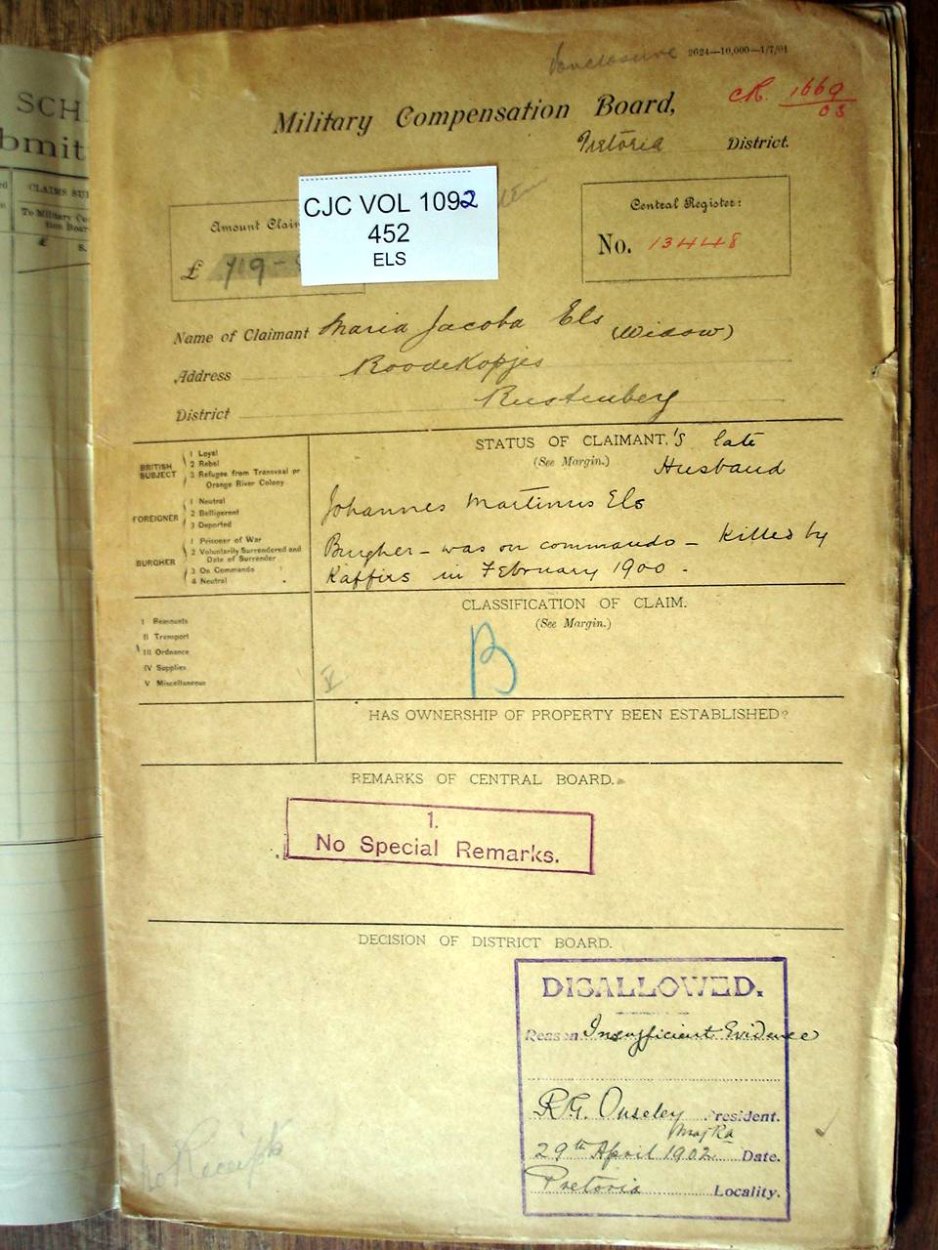 SCH
bmit
CLAIMS SU
To Military Co
tion Boar
£ S.
2624—10,000—1/7/01
CR. 1669/03
Military Compensation Board,
Pretoria District.
CJC VOL 1092
452
ELS
Amount Clai
£ 719-
Central Register:
No. 13448
Name of Claimant Maria Jacoba Els (Widow)
Address Roodekopjes
District Rustenberg
BRITISH SUBJECT
1 Loyal
2 Rebel
3 Refugee from Transvaal or
Orange River Colony
FOREIGNER
1 Neutral
2 Belligerent
3 Deported
BURGHER
1 Prisoner of War
2 Voluntarily Surrendered and
Date of Surrender
3 On Commando
4 Neutral
STATUS OF CLAIMANT.'s late
(See Margin.) Husband
Johannes Martinus Els
Burgher – was on commando – Killed by
Kaffirs in February 1900 .
I Remounts
II Transport
III Ordnance
IV Supplies
V Miscellaneous
CLASSIFICATION OF CLAIM.
(See Margin.)
V
B
HAS OWNERSHIP OF PROPERTY BEEN ESTABLISHED?
REMARKS OF CENTRAL BOARD.
1.
No Special Remarks.
DECISION OF DISTRICT BOARD.
DISALLOWED.
Reason Insufficient Evidence
R.G. Ouseley President.
Maj RA
29th April 1902 Date.
Pretoria Locality.
No Receipts